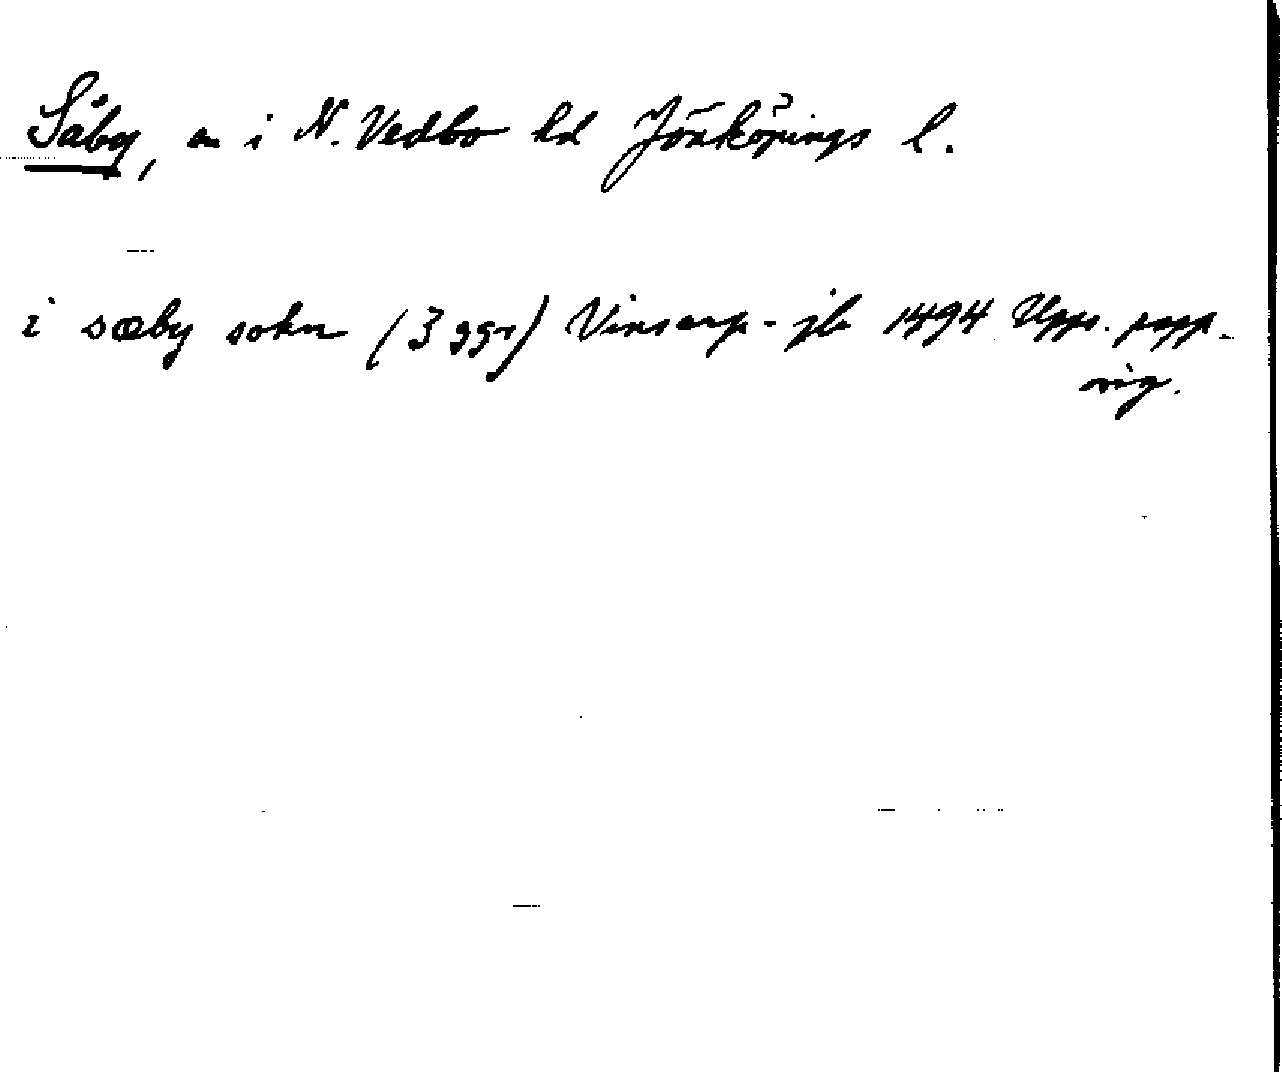 Säby, sn i N. Vedbo hd Jönköpings l.
i sæby sokn (3 ggr) Vinsarp-jb 1494 Upps. papp.
orig.